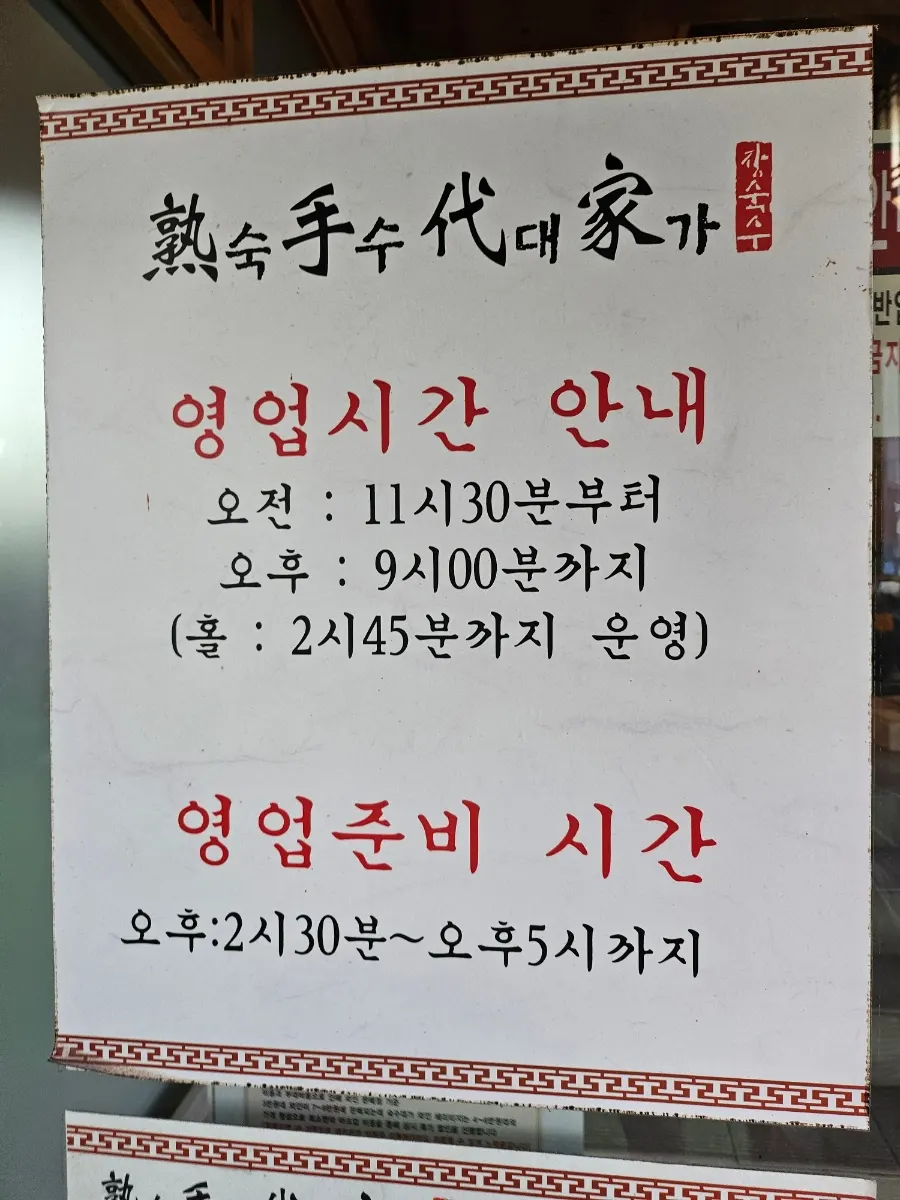 熟숙手수代대家가 장숙수
영업시간 안내
오전 : 11시30분부터
오후 : 9시00분까지
(홀 : 2시45분까지 운영)
영업준비 시간
오후:2시30분~오후5시까지
반입
금지